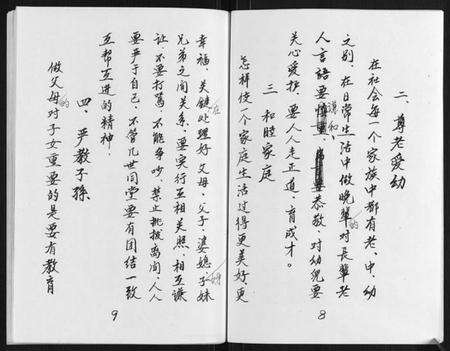 二、尊老爱幼
在社会每一个家族中都有老、中、幼
之别，在日常生活中做晚辈的对長輩老
人言語要谨慎和，要恭敬，对幼兒要
关心爱护，要人人走正道，育成才。
三 和睦家庭
怎样使一个家庭生活过得更美好，更
8
幸福，关键在处理好父母、父子、婆媳、子妹
兄弟之间关系，要实行互相关照，相互谦
让，不要打骂，不能争吵，禁止挑拨离间，人人
要严于自己，不管几世同堂要有团结一致
互帮互进的精神。
四、严教子孫
做父母的对子女重要的是要有教育
9